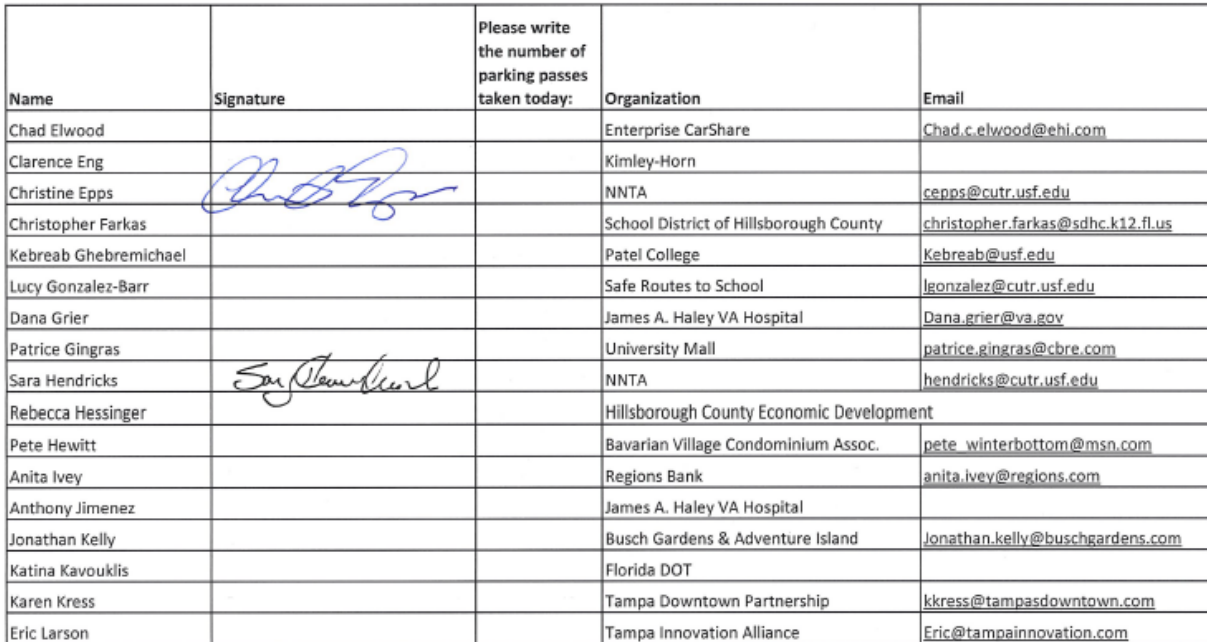 Name Signature Please write the number of parking passes taken today: Organization Email
Chad Elwood Enterprise CarShare Chad.c.elwood@ehi.com
Clarence Eng Kimley-Horn
Christine Epps NNTA cepps@cutr.usf.edu
Christopher Farkas School District of Hillsborough County christopher.farkas@sdhc.k12.fl.us
Kebreab Ghebremichael Patel College Kebreab@usf.edu
Lucy Gonzalez-Barr Safe Routes to School lgonzalez@cutr.usf.edu
Dana Grier James A. Haley VA Hospital Dana.grier@va.gov
Patrice Gingras University Mall patrice.gingras@cbre.com
Sara Hendricks NNTA hendricks@cutr.usf.edu
Rebecca Hessinger Hillsborough County Economic Development
Pete Hewitt Bavarian Village Condominium Assoc. pete_winterbottom@msn.com
Anita Ivey Regions Bank anita.ivey@regions.com
Anthony Jimenez James A. Haley VA Hospital
Jonathan Kelly Busch Gardens & Adventure Island Jonathan.kelly@buschgardens.com
Katina Kavouklis Florida DOT
Karen Kress Tampa Downtown Partnership kkress@tampasdowntown.com
Eric Larson Tampa Innovation Alliance Eric@tampainnovation.com